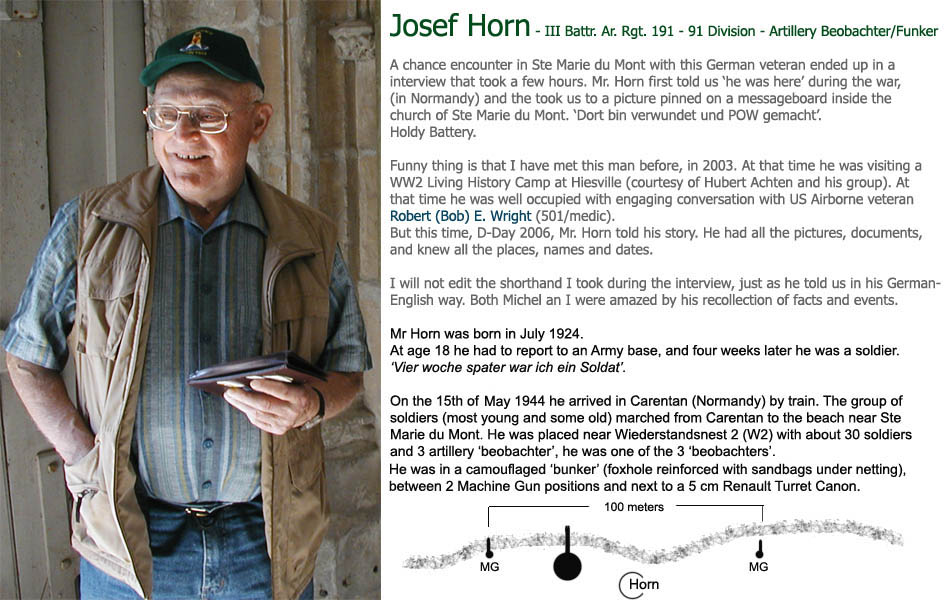 Josef Horn - III Battr. Ar. Rgt. 191 - 91 Division - Artillery Beobachter/Funker
A chance encounter in Ste Marie du Mont with this German veteran ended up in a
interview that took a few hours. Mr. Horn first told us ‘he was here’ during the war,
(in Normandy) and the took us to a picture pinned on a messageboard inside the
church of Ste Marie du Mont. ‘Dort bin verwundet und POW gemacht’.
Holdy Battery.
Funny thing is that I have met this man before, in 2003. At that time he was visiting a
WW2 Living History Camp at Hiesville (courtesy of Hubert Achten and his group). At
that time he was well occupied with engaging conversation with US Airborne veteran
Robert (Bob) E. Wright (501/medic).
But this time, D-Day 2006, Mr. Horn told his story. He had all the pictures, documents,
and knew all the places, names and dates.
I will not edit the shorthand I took during the interview, just as he told us in his German-
English way. Both Michel an I were amazed by his recollection of facts and events.
Mr Horn was born in July 1924.
At age 18 he had to report to an Army base, and four weeks later he was a soldier.
‘Vier woche spater war ich ein Soldat’.
On the 15th of May 1944 he arrived in Carentan (Normandy) by train. The group of
soldiers (most young and some old) marched from Carentan to the beach near Ste
Marie du Mont. He was placed near Wiederstandsnest 2 (W2) with about 30 soldiers
and 3 artillery ‘beobachter’, he was one of the 3 ‘beobachters’.
He was in a camouflaged ‘bunker’ (foxhole reinforced with sandbags under netting),
between 2 Machine Gun positions and next to a 5 cm Renault Turret Canon.
100 meters
MG
MG
Horn